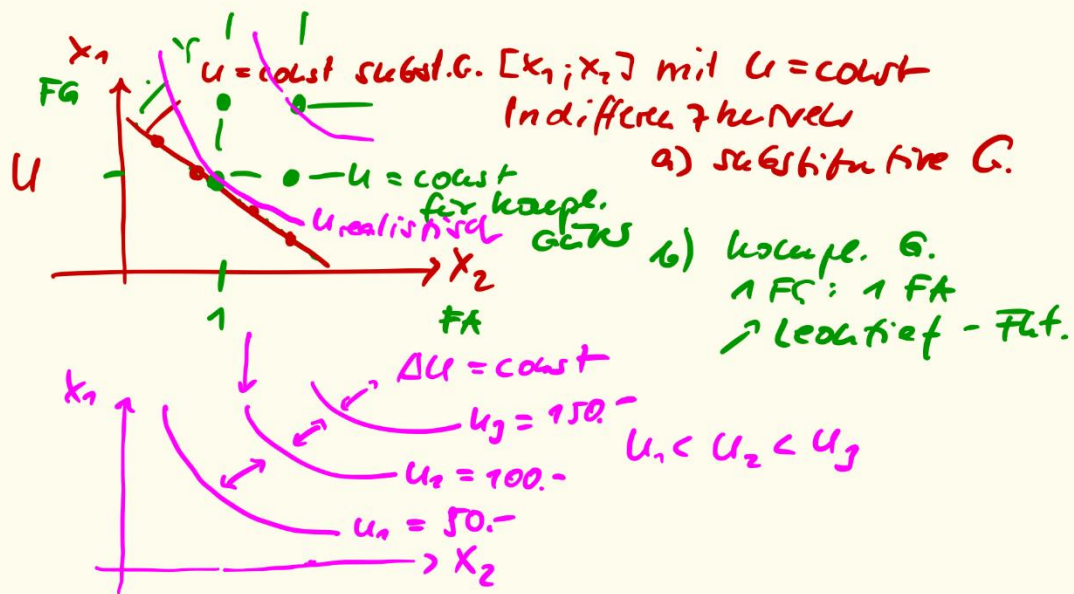 x₁
FG
U = const subst. G. [x₁; x₂] mit U = const
Indifferenzkurven
a) substitutive G.
U
U = const
für kompl.
Güter
U realistisch
b) kompl. G.
1 FG : 1 FA
↗ Leontief - Fkt.
x₂
1
FA
x₁
ΔU = const
u₃ = 150.-
u₂ = 100.-
u₁ = 50.-
U₁ < U₂ < U₃
x₂